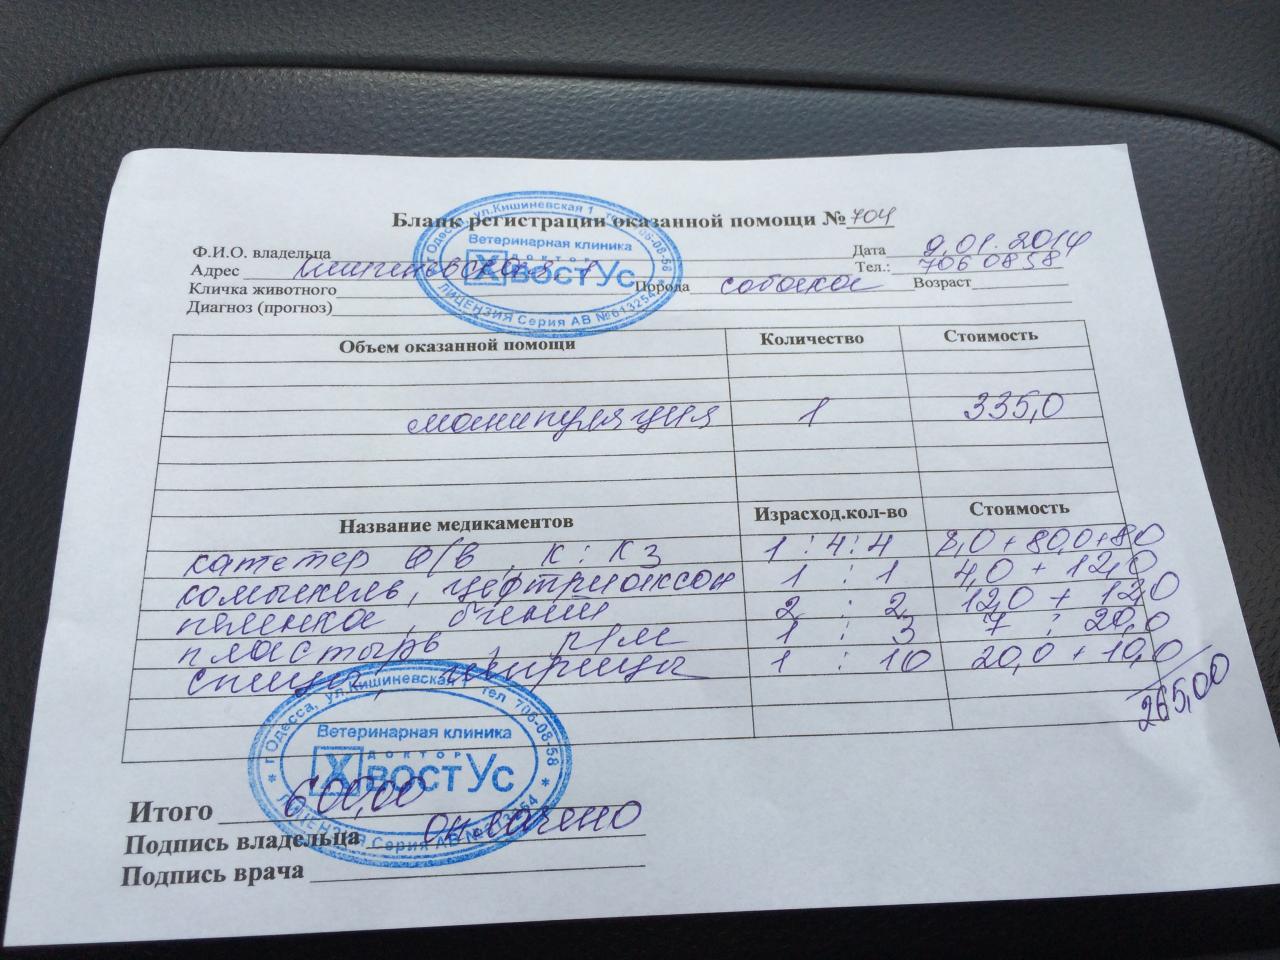 Бланк регистрации оказанной помощи № 704
Ф.И.О. владельца Дата 9.01.2014
Адрес Кишиневская, 1 Тел.: 7060858
Кличка животного Порода собака Возраст
Диагноз (прогноз)
г Одесса, ул.Кишиневская 1 тел 706-08-58
Ветеринарная клиника
ДОКТОР
ХВОСТУС
ЛИЦЕНЗИЯ Серия АВ №613254
Объем оказанной помощи Количество Стоимость
манипуляция 1 335,0
Название медикаментов Израсход.кол-во Стоимость
катетер в/в, К : К3 1 : 4 : 4 8,0 + 80,0 + 80
цефтриаксон 1 : 1 4,0 + 12,0
пеленка, 2 : 2 12,0 + 12,0
пластырь, р-р 1 : 3 7 : 20,0
шприцы 1 : 10 20,0 + 10,0
265,00
г Одесса, ул.Кишиневская 1 тел 706-08-58
Ветеринарная клиника
ДОКТОР
ХВОСТУС
ЛИЦЕНЗИЯ Серия АВ №613254
Итого 600,00
Подпись владельца оплачено
Подпись врача